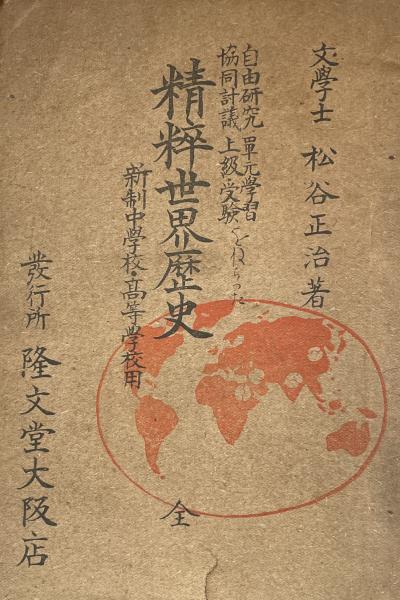 文學士 松谷正治著
自由研究 單元學習
協同討議 上級受驗
をねらった
精粹世界歷史
新制中學校・高等學校用
全
發行所 隆文堂大阪店